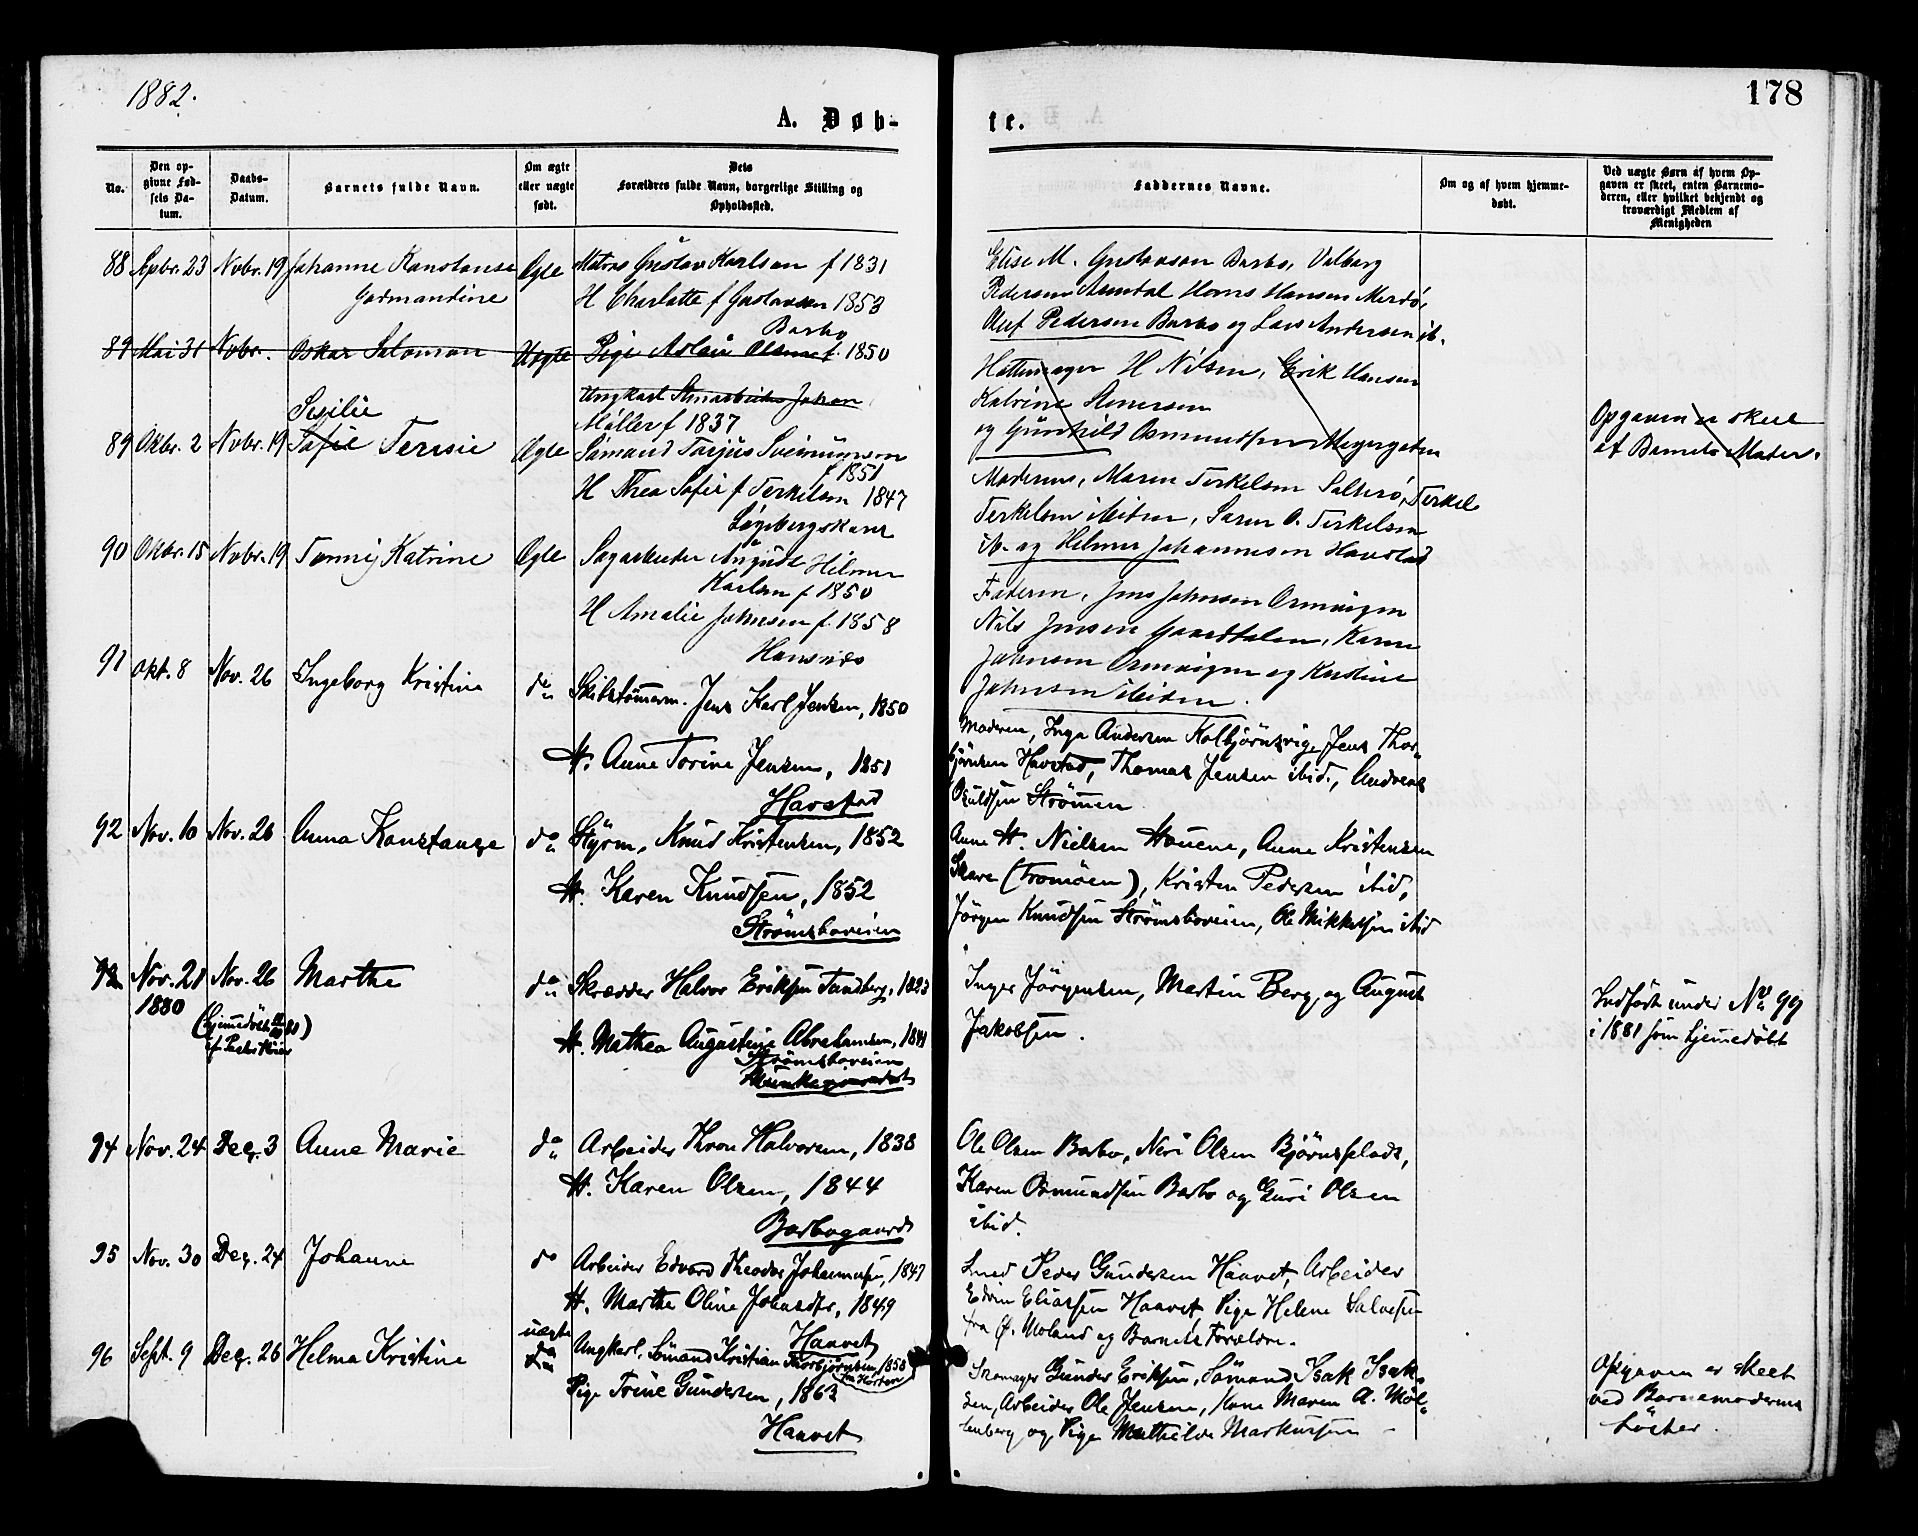 1882.
178
A. Døb-
te.
No.
Den op-
givne Fød-
sels Da-
tum.
Daabs-
Datum.
Barnets fulde Navn.
Om ægte
eller uægte
født.
Dets
Forældres fulde Navn, borgerlige Stilling og
Opholdssted.
Faddernes Navne.
Om og af hvem hjemme-
døbt.
Ved uægte Børn af hvem Op-
gaven er skeet, enten Barnemo-
deren, eller hvilket bekjendt og
troværdigt Medlem af
Menigheden
88 23 Nvbr. 19 Johanne Konstanse Ægte Matros Gustav Karlsen f 1831
Gusmandine H Charlotte f Gustavsen 1853
Barbo
Elise M. Gustavsen Barbo, Valborg
Pedersen Arendal Hansen Merdø,
Oluf Pedersen Barbo og Lars Andersen ib.
89 Mai 31 Nvbr. Oskar Salomon Uegte Pige Aslau Olsen f. 1850
Ungkarl Johan
Møller f 1837
H Nilsen, Erik Hansen
Katrine
og Gunhild Osmundsen
Opgaven er skeet
af Barnets Moder.
Sesilie
89 Oktbr. 2 Nvbr. 19 Sofie Teresie Ægte Sømand Torjus Sveinumsen
f 1851
H Thea Sofie f Terkelsen 1847
Moderen, Maren Terkelsen Salterø, Terkel
Terkelsen ibiden, Søren O. Terkelsen
ib. og Helmer Johannesen Havstad
90 Oktbr. 15 Nvbr. 19 Tomij Katrine Ægte Sagarbeider August Hilmer
Karlsen f 1850
H Amalie Johnsen f. 1858
Hansnæs
Faderen, Jens Johnsen
Nils Jensen Gaardtalen, Karen
Johnsen og Kristine
Johnsen ibiden.
91 Okt. 8 Nov. 26 Ingeborg Kristine do Skibstømerm. Jens Karl Jensen, 1850
H. Anne Torine Jensen, 1851
Havstad
Moderen, Inga Andersen Kolbjørnsvig, Jens Thor-
bjørnsen Havstad, Thomas Jensen ibid., Andreas
Osuldsen Strømmen
92 Nov. 10 Nov. 26 Anna Konstanze do Styrm. Knud Kristensen, 1852
H. Karen Knudsen, 1852
Strømsboveien
Anne H. Nielsen Houene, Anne Kristensen
Skare (Tromøen), Kristen Pedersen ibid,
Jørgen Knudsen Strømsboveien, Ole Mikkelsen ibid
Nov. 21 Nov. 26 Marthe do Skrædder Halvor Eriksen Sandberg, 1823
1880
H. Mathea Augustine Abrahamsen, 1841
Strømsboveien
Inger Jørgensen, Martin Berg og August
Jakobsen.
Indført under No 99
i 1881 som hjemmedøbt
94 Nov. 24 Dec. 3 Anne Marie do Arbeider Thron Halvorsen, 1838
H. Karen Olsen, 1844
Barbogaard
Ole Olsen Barbo, Neri Olsen Bjørnsplads,
Karen Osmundsen Barbo og Guri Olsen
ibid.
95 Nov. 30 Dec. 24 Johanne do Arbeider Edvard Theodor Johannesen, 1847
H. Marthe Oline Johnsdtr, 1849
Haavet
Smed Peder Gundersen Haavet, Arbeider
Edvin Eliassen Haavet, Pige Helene Salvesen
fra Ø. Moland og Barnets Forældre.
96 Sept. 9 Dec. 26 Helma Kristine uægte Ungkarl, Sømand Kristian Thorbjørnsen, 1858
fra Horten
Pige Trine Gundersen, 1863
Haavet
Skomager Gunder Eriksen, Sømand Isak Isak-
sen, Arbeider Ole Jensen, Kone Maren A. Møl-
lenberg og Pige Mathilde Markussen
Opgaven er skeet
ved Barnemoderens
Søster.